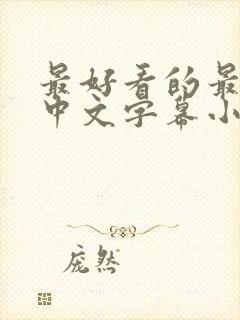 最好看的最
中文字幕小
庞然